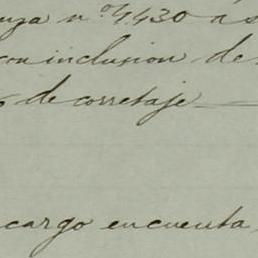 nza nº 4430 a s
con inclusion de
% de corretaje
cargo en cuenta